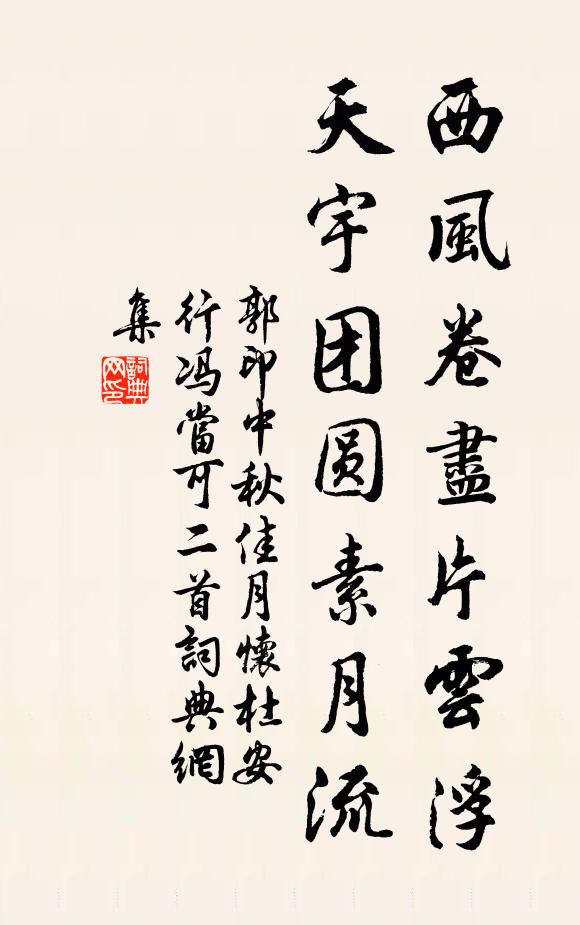 西風卷盡片雲浮
天宇团圆素月流
郭印中秋佳月懷杜安
行冯當可二首詞典網
集
詞典
网印